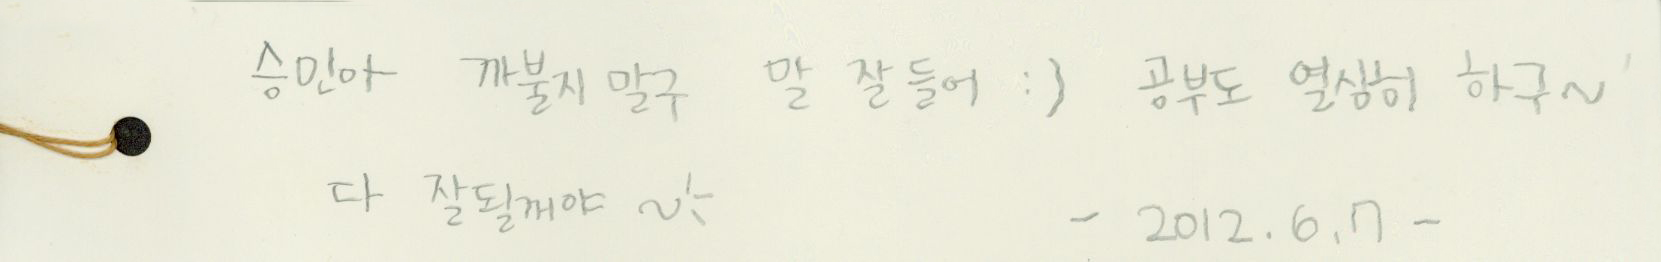 승민아 까불지 말구 말 잘 들어 :) 공부도 열심히 하구~
다 잘될꺼야~
- 2012.6.7 -